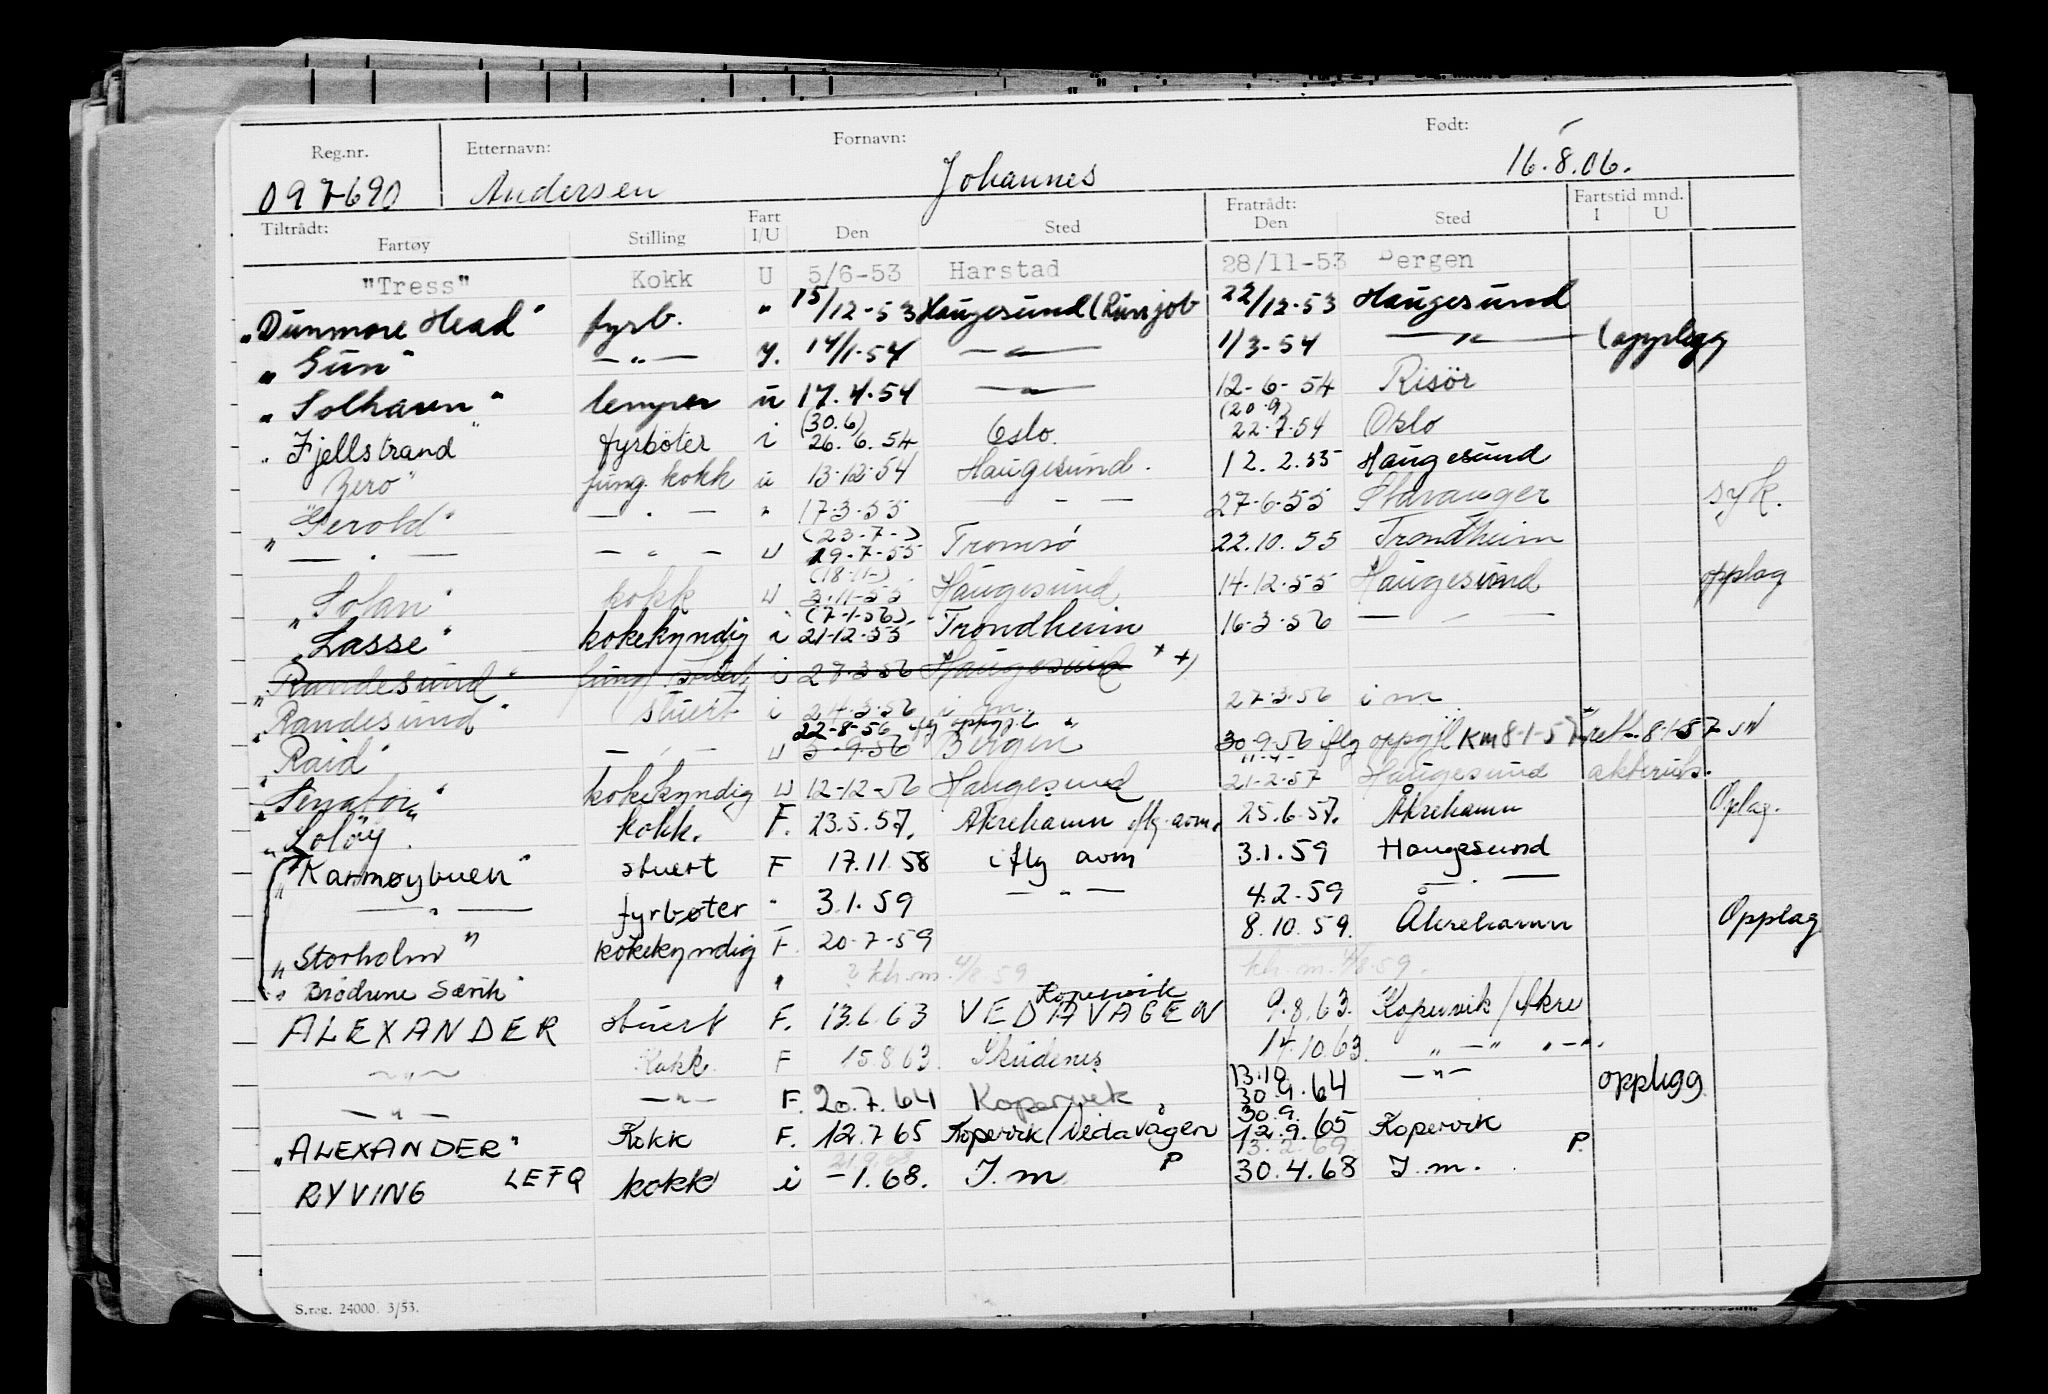 Reg.nr. Etternavn: Fornavn: Født:
097690 Andersen Johannes 16.8.06.
Tiltrådt: Fratrådt: Fartstid mnd.
Fartøy Stilling Fart I/U Den Sted Den Sted I U
"Tress" Kokk U 5/6-53 Harstad 28/11-53 Bergen
"Dunmore Head" fyrb. " 15/12-53 Haugesund (Runjob 22/12-53 Haugesund
"Gun" — " — 14/1-54 — " — 1/3-54 — " — (opplegg
"Solhavn" lemper u 17.4.54 — " — 12-6-54 Risör
(30.6) (20.9)
"Fjellstrand" fyrböter i 26.6.54 Oslo. 22.7.54 Oslo
Zero" jung. kokk u 13.12.54 Haugesund. 12.2.55 Haugesund
"Gerold" — " — " 17.3.55 — — 27-6-55 Stavanger syk.
(23-7-)
" — " — — " — u 19-7-55 Tromsö 22.10.55 Trondheim
(18-11-)
"Solan" kokk u 3.11-55 Haugesund 14-12-55 Haugesund opplag
(7-1-56)
"Lasse" kokekyndig i 21-12-55 Trondheim 16-3-56 — " —
"Randesund" i 27-3-56 Haugesund x +)
"Randesund" stuert i 24-3-56 i m 27-3-56 i m
22-8-56 iflg oppgj.
"Raid" — " — u 5-9-56 Bergen 30-9-56 iflg oppgj KM 8-1-57
"Senator" kokekyndig u 12-12-56 Haugesund 21-2-57 Haugesund
"Soløy" kokk. F. 23.5.57. Åkrehamn iflg. avm. 25.6.57. Åkrehamn Oplag.
"Karmøybuen" stuert F 17.11.58 iflg avm 3.1.59 Haugesund
— " — fyrbøter " 3.1.59 — " — 4.2.59 — " —
"Storholm" kokekyndig F. 20-7-59 8.10.59. Åkrehamn Opplag
"Brödrene Sævik" " ? kh.m. 4/8.59 kh.m. 4/8.59.
Kopervik
ALEXANDER stuert F. 13.6.63 VEDAVÅGEN 9.8.63. Kopervik/Åkre
— " — Kokk F 15.8.63. Skudenes 14.10.63. " — " " — "
13.10
— " — — " — F. 20.7.64 Kopervik 30.9.64 — " — opplegg
30.9.
"ALEXANDER" Kokk F. 12.7.65 Kopervik/Vedavågen 12.9.65 Kopervik
P 13.2.69 P.
RYVING LEFQ kokk i -1.68. I.m 30.4.68 I.m.
S.reg. 24000. 3/53.